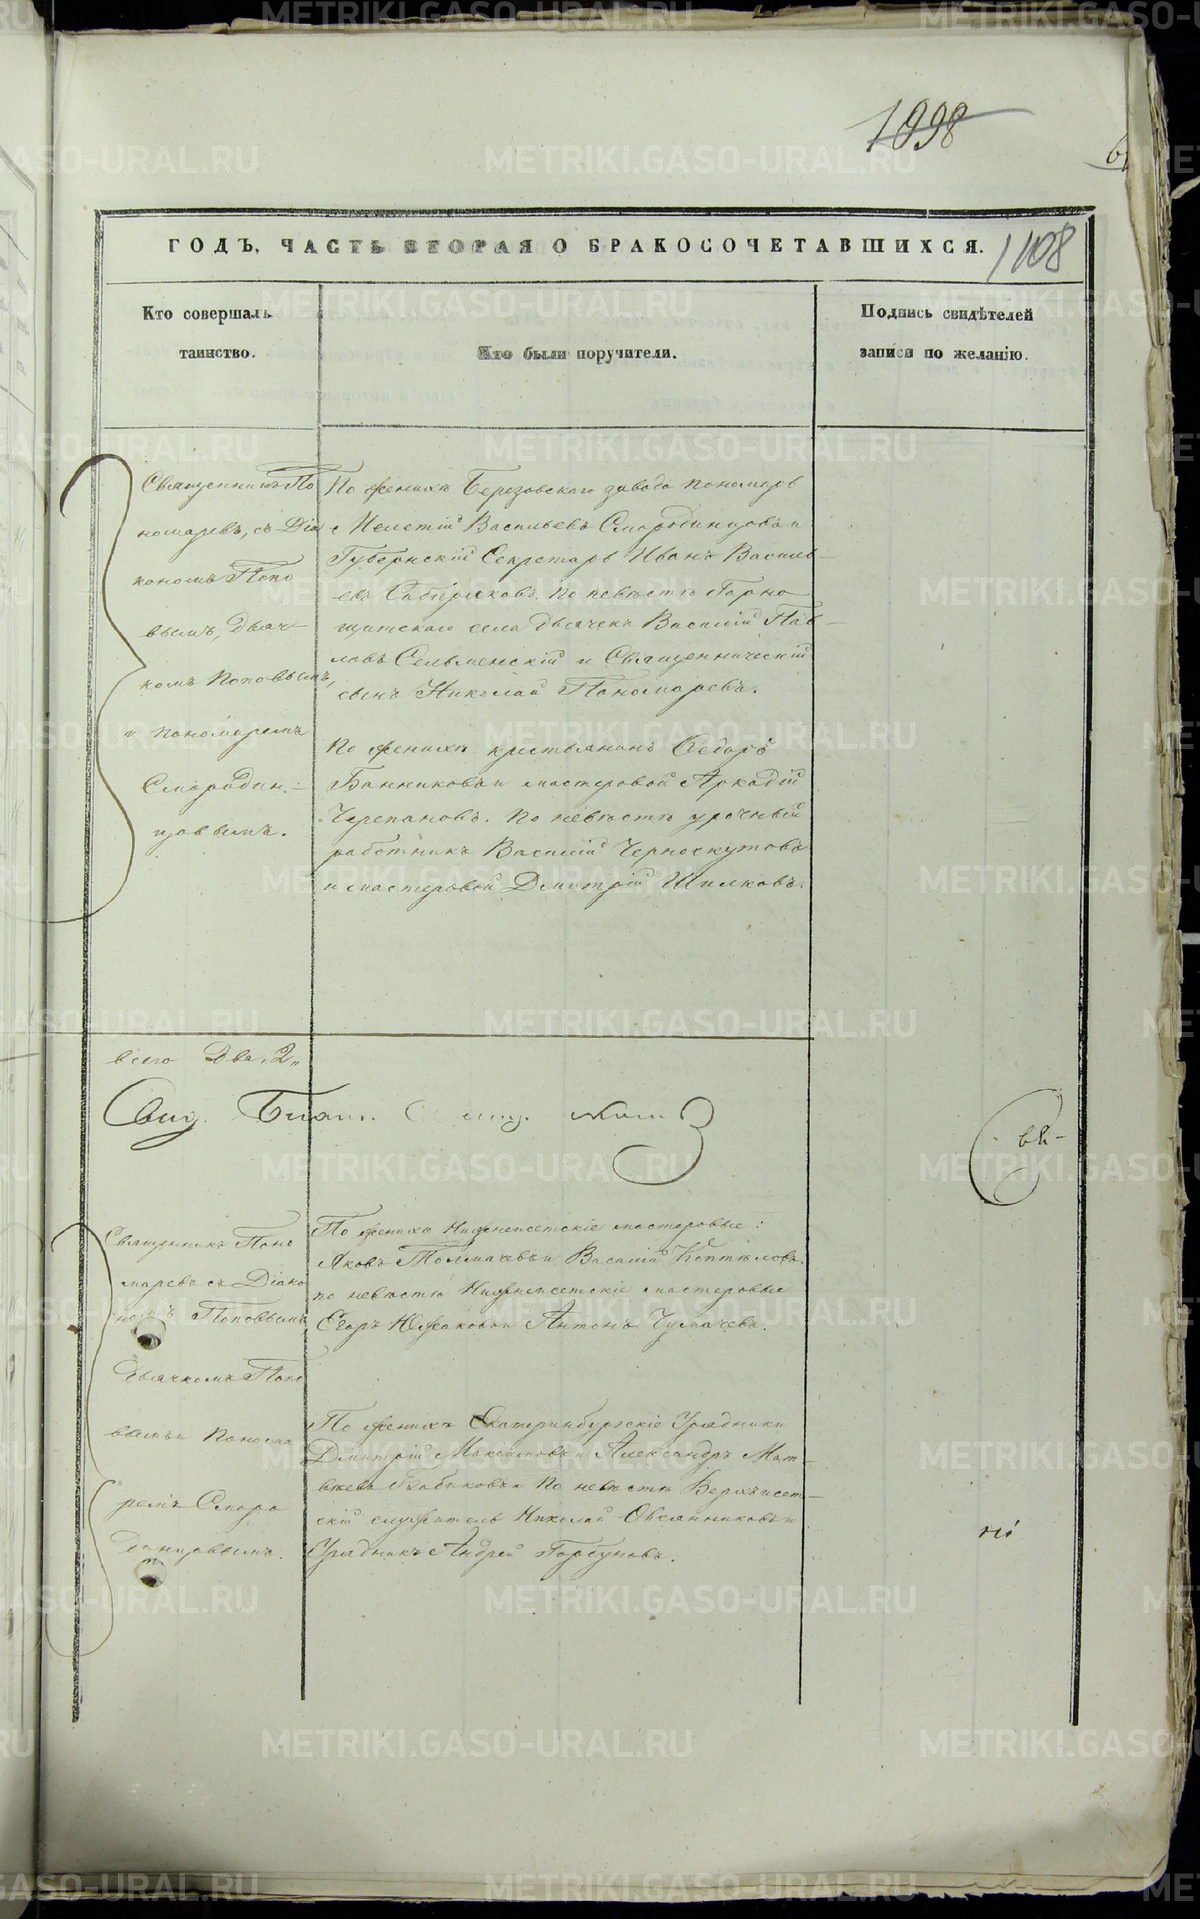 1998
ГОДЪ, ЧАСТЬ ВТОРАЯ О БРАКОСОЧЕТАВШИХСЯ.
1108
Кто совершалъ
таинство.
Кто были поручители.
Подпись свидѣтелей
записи по желанію.
Священникъ По
номаревъ, съ Діа
кономъ Попо
вымъ, Дьяч
комъ Поповымъ,
и пономаремъ
Смородин-
цовымъ.
По женихѣ Березовскаго завода пономарь
Мелетій Васильевъ Смородинцовъ и
Губернскій Секретарь Иванъ Василь-
евъ Сибиряковъ. По невѣстѣ Горно
щитскаго села Дьячекъ Василій Пав-
ловъ Сельменскій и Священническій
сынъ Николай Пономаревъ.
По женихѣ крестьянинъ Ѳедоръ
Банниковъ и мастеровой Аркадій
Черепановъ. По невѣстѣ урочный
работникъ Василій Черноскутовъ
и мастеровой Дмитрій Шилковъ.
всего Два. 2.
Священникъ Поно
маревъ съ Діако
номъ Поповымъ
Дьячкомъ Попо
вымъ и Понома
ремъ Сморо
динцовымъ.
По женихѣ Нижнеисетскіе мастеровые:
Яковъ Толмачевъ и Василій Коптѣловъ.
по невѣстѣ Нижнеисетскіе мастеровые
Егоръ Южаковъ и Антонъ Чумачевъ.
По женихѣ Екатеринбургскіе Урядники
Дмитрій Макаѣ и Александръ Мат-
вѣевъ Бабиковъ и По невѣстѣ Верхъисет-
скій служитель Николай Овсянниковъ и
Урядникъ Андрей Горбуновъ.
METRIKI.GASO-URAL.RU